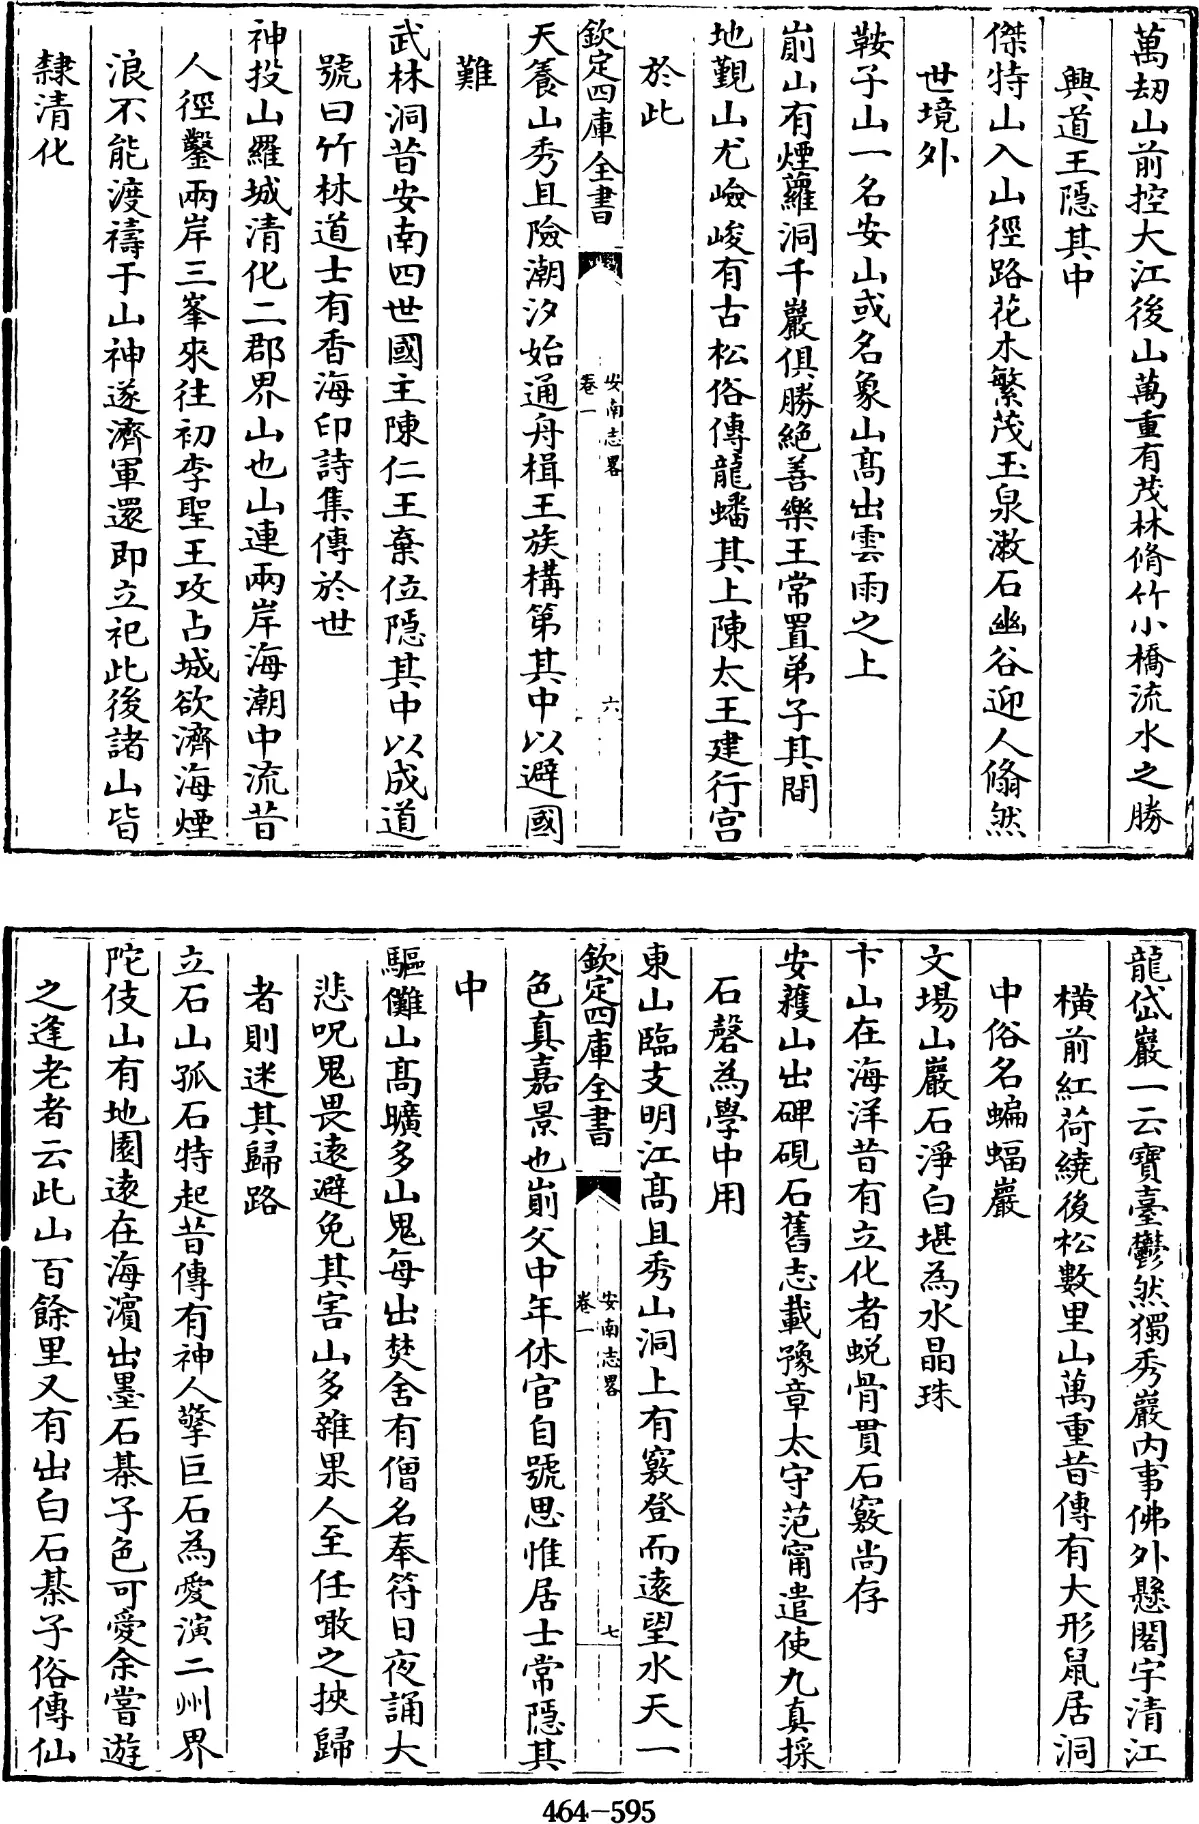 萬刼山前控大江後山萬重有茂林脩竹小橋流水之勝
興道王隱其中
傑特山入山徑路花木繁茂玉泉潄石幽谷迎人翛然
世境外
鞍子山一名安山或名象山髙出雲雨之上
前山有煙蘿洞千巖俱勝絶善樂王常置弟子其間
地觀山尤嶮峻有古松俗傳龍蟠其上陳太王建行宫
於此
欽定四庫全書
安南志畧
卷一
六
天養山秀且險潮汐始通舟楫王族構第其中以避國
難
武林洞昔安南四世國主陳仁王棄位隱其中以成道
號曰竹林道士有香海印詩集傳於世
神投山羅城清化二郡界山也山連兩岸海潮中流昔
人徑鑿兩岸三峯來往初李聖王攻占城欲濟海煙
浪不能渡禱于山神遂濟軍還即立祀此後諸山皆
隸清化
龍岱巖一云寶臺鬱然獨秀巖内事佛外懸閣宇清江
橫前紅荷繞後松數里山萬重昔傳有大形鼠居洞
中俗名蝙蝠巖
文場山巖石淨白堪為水晶珠
卞山在海洋昔有立化者蛻骨貫石竅尚存
安蔍山出碑硯石舊志載豫章太守范甯遣使九真採
石磬為學中用
東山臨支明江髙且秀山洞上有竅登而遠望水天一
欽定四庫全書
安南志畧
卷一
七
色真嘉景也前父中年休官自號思惟居士常隱其
中
驅儺山髙曠多山鬼每出焚舍有僧名奉符日夜誦大
悲呪鬼畏遠避免其害山多雜果人至任噉之挾歸
者則迷其歸路
立石山孤石特起昔傳有神人擎巨石為愛演二州界
陀伎山有地圍遠在海濵出墨石棊子色可愛余嘗遊
之逢老者云此山百餘里又有出白石棊子俗傳仙
464-595